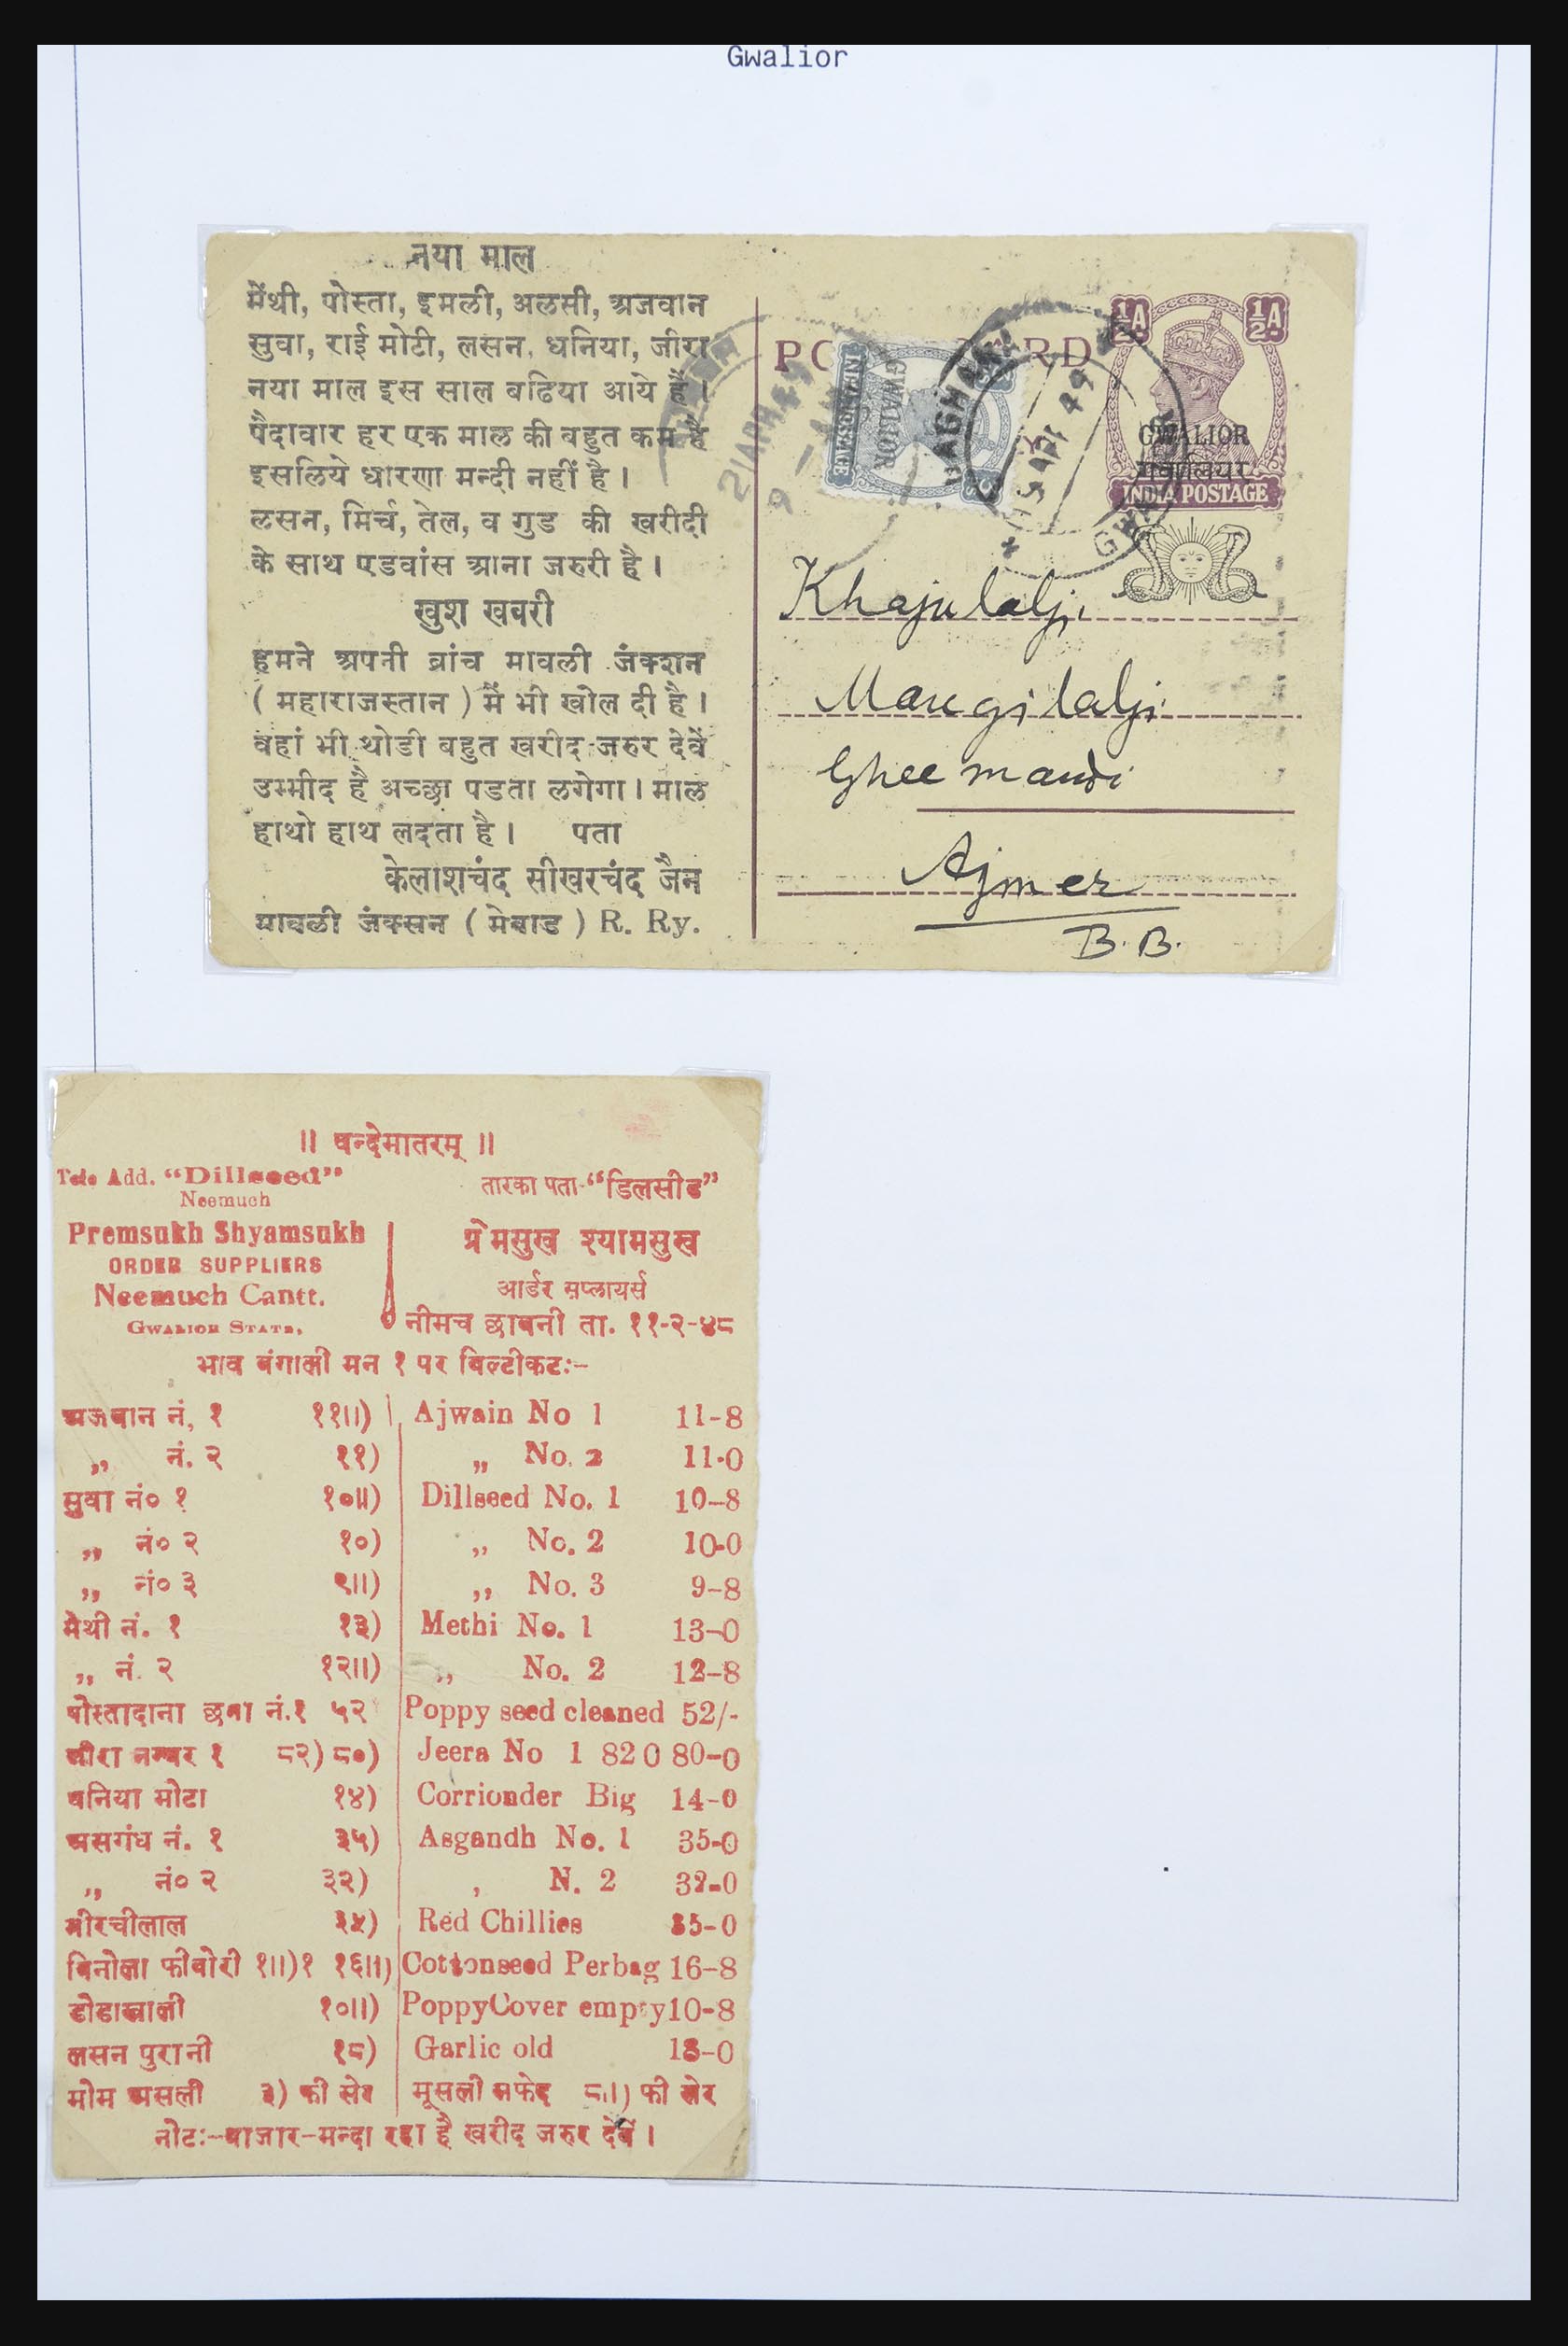 Gwalior
नया माल
मेंथी, पोस्ता, इमली, अलसी, अजवान
सुवा, राई मोटी, लसन, धनिया, जीरा
नया माल इस साल बढिया आये है ।
पैदावार हर एक माल की बहुत कम है
इसलिये धारणा मन्दी नहीं है ।
लसन, मिर्च, तेल, व गुड की खरीदी
के साथ एडवांस आना जरुरी है ।
खुश खबरी
हमने अपनी ब्रांच मावली जंक्शन
( महाराजस्तान ) में भी खोल दी है ।
वहां भी थोडी बहुत खरीद जरुर देवें
उम्मीद है अच्छा पडता लगेगा । माल
हाथो हाथ लदता है । पता
केलाशचंद सीखरचंद जैन
मावली जंक्सन ( मेवाड ) R. Ry.
½A ½A
GWALIOR
गवालियर
INDIA POSTAGE
GWALIOR
INDIA POSTAGE
21 APR 49
Khajulalji
Mangilalji
Ghee mandi
Ajmer
B. B.
॥ वन्देमातरम् ॥
Tele Add. “Dillseed”
Neemuch
Premsukh Shyamsukh
ORDER SUPPLIERS
Neemuch Cantt.
GWALIOR STATE,
तारका पता “डिलसीड”
प्रेमसुख श्यामसुख
आर्डर सप्लायर्स
नीमच छावनी ता. ११-२-४८
भाव बंगाली मन १ पर बिल्टीकटः-
अजवान नं, १ ११॥) Ajwain No 1 11-8
„ नं. २ ११) „ No. 2 11-0
सुवा नं० १ १०॥) Dillseed No. 1 10-8
„ नं० २ १०) „ No. 2 10-0
„ नं० ३ ९॥) „ No. 3 9-8
मेथी नं. १ १३) Methi No. 1 13-0
„ नं. २ १२॥) „ No. 2 12-8
पोस्तादाना छना नं.१ ५२ Poppy seed cleaned 52/-
जीरा नम्बर १ ८२) ८०) Jeera No 1 82 0 80-0
धनिया मोटा १४) Corrionder Big 14-0
असगंध नं. १ ३५) Asgandh No. 1 35-0
„ नं० २ ३२) , N. 2 32-0
मीरचीलाल ३५) Red Chillies 35-0
बिनोला फीबोरी १॥)१ १६॥) Cottonseed Perbag 16-8
डोडाखाली १०॥) PoppyCover empty 10-8
लसन पुरानी १८) Garlic old 18-0
मोम असली ३) फी सेर मूसली सफेद ८॥) फी सेर
नोटः-बाजार-मन्दा रहा है खरीद जरुर देवें ।